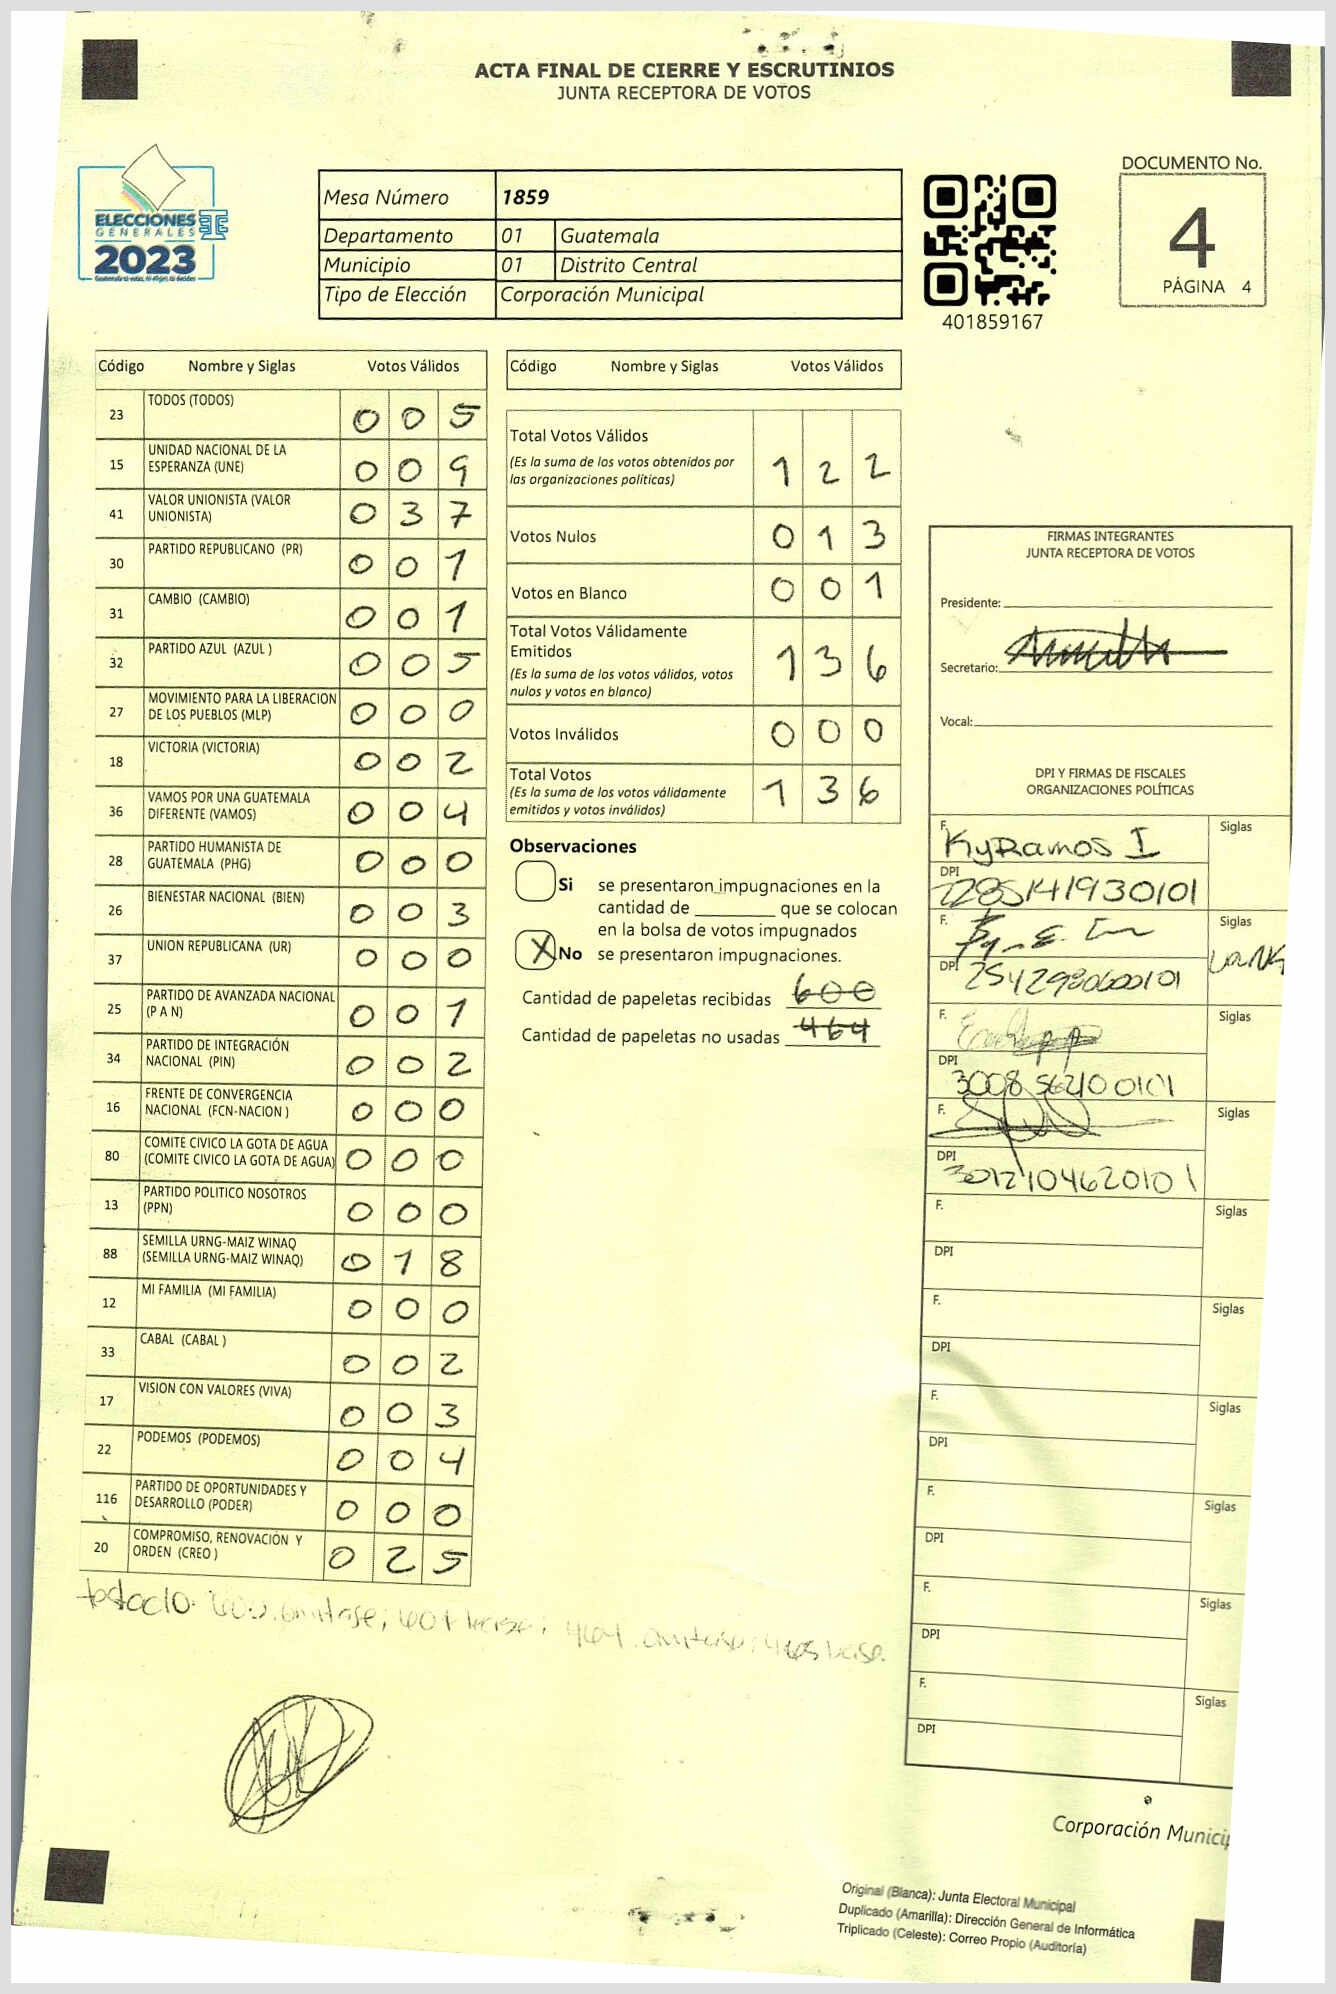 ACTA FINAL DE CIERRE Y ESCRUTINIOS
JUNTA RECEPTORA DE VOTOS
ELECCIONES
GENERALES
2023
Mesa Número 1859
Departamento 01 Guatemala
Municipio 01 Distrito Central
Tipo de Elección Corporación Municipal
401859167
DOCUMENTO No.
4
PÁGINA 4
Código Nombre y Siglas Votos Válidos
23 TODOS (TODOS) 0 0 5
15 UNIDAD NACIONAL DE LA
ESPERANZA (UNE) 0 0 9
41 VALOR UNIONISTA (VALOR
UNIONISTA) 0 3 7
30 PARTIDO REPUBLICANO (PR) 0 0 1
31 CAMBIO (CAMBIO) 0 0 1
32 PARTIDO AZUL (AZUL ) 0 0 5
27 MOVIMIENTO PARA LA LIBERACION
DE LOS PUEBLOS (MLP) 0 0 0
18 VICTORIA (VICTORIA) 0 0 2
36 VAMOS POR UNA GUATEMALA
DIFERENTE (VAMOS) 0 0 4
28 PARTIDO HUMANISTA DE
GUATEMALA (PHG) 0 0 0
26 BIENESTAR NACIONAL (BIEN) 0 0 3
37 UNION REPUBLICANA (UR) 0 0 0
25 PARTIDO DE AVANZADA NACIONAL
(P A N) 0 0 1
34 PARTIDO DE INTEGRACIÓN
NACIONAL (PIN) 0 0 2
16 FRENTE DE CONVERGENCIA
NACIONAL (FCN-NACION ) 0 0 0
80 COMITE CIVICO LA GOTA DE AGUA
(COMITE CIVICO LA GOTA DE AGUA) 0 0 0
13 PARTIDO POLITICO NOSOTROS
(PPN) 0 0 0
88 SEMILLA URNG-MAIZ WINAQ
(SEMILLA URNG-MAIZ WINAQ) 0 1 8
12 MI FAMILIA (MI FAMILIA) 0 0 0
33 CABAL (CABAL ) 0 0 2
17 VISION CON VALORES (VIVA) 0 0 3
22 PODEMOS (PODEMOS) 0 0 4
116 PARTIDO DE OPORTUNIDADES Y
DESARROLLO (PODER) 0 0 0
20 COMPROMISO, RENOVACIÓN Y
ORDEN (CREO ) 0 2 5
Código Nombre y Siglas Votos Válidos
Total Votos Válidos
(Es la suma de los votos obtenidos por
las organizaciones políticas) 1 2 2
Votos Nulos 0 1 3
Votos en Blanco 0 0 1
Total Votos Válidamente
Emitidos 1 3 6
(Es la suma de los votos válidos, votos
nulos y votos en blanco)
Votos Inválidos 0 0 0
Total Votos
(Es la suma de los votos válidamente
emitidos y votos inválidos) 1 3 6
Observaciones
Si se presentaron impugnaciones en la
cantidad de ________ que se colocan
en la bolsa de votos impugnados
X No se presentaron impugnaciones.
Cantidad de papeletas recibidas 600
Cantidad de papeletas no usadas 464
FIRMAS INTEGRANTES
JUNTA RECEPTORA DE VOTOS
Presidente:
Secretario:
Vocal:
DPI Y FIRMAS DE FISCALES
ORGANIZACIONES POLÍTICAS
F. KyRamos I Siglas
DPI 2285141930101
F. Siglas
DPI 2542980600101
F. Siglas
DPI 3008562100101
F. Siglas
DPI 3012104620101
F. Siglas
DPI
F. Siglas
DPI
F. Siglas
DPI
F. Siglas
DPI
F. Siglas
DPI
F. Siglas
DPI
testado: 600. omitase; 601 lease; 464. omitase; 465 lease.
Corporación Munici
Original (Blanca): Junta Electoral Municipal
Duplicado (Amarilla): Dirección General de Informática
Triplicado (Celeste): Correo Propio (Auditoría)